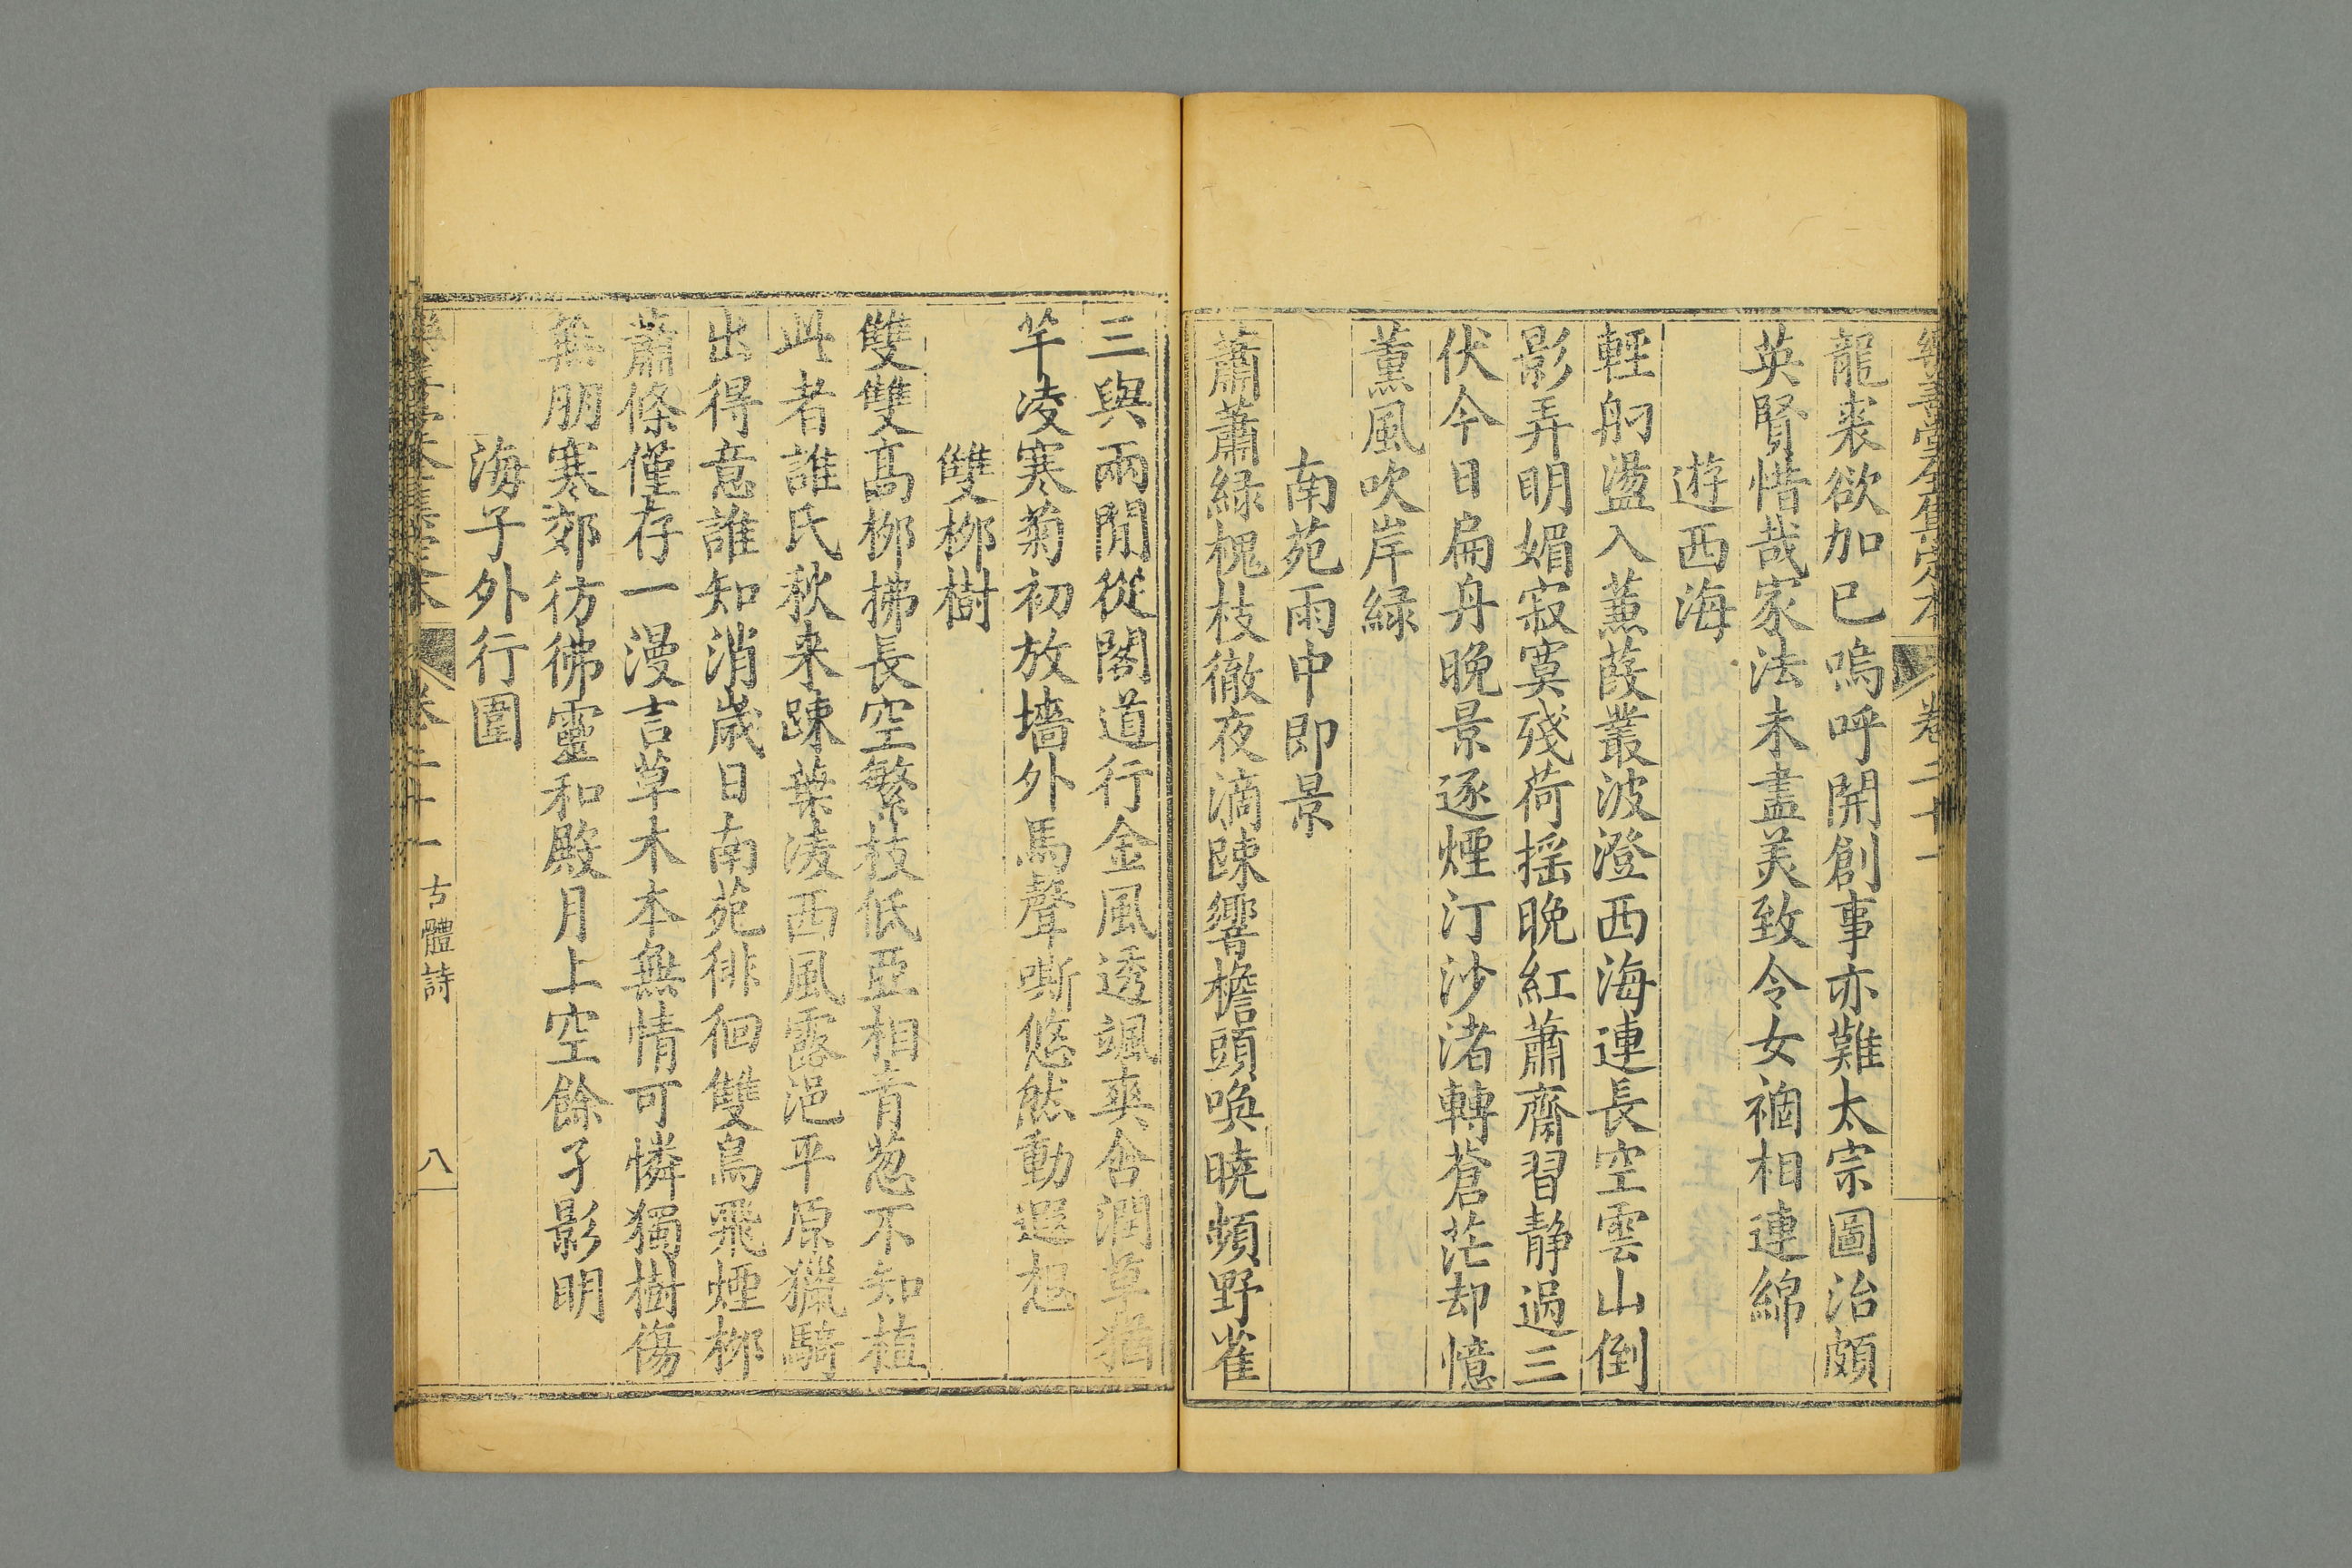 樂善堂全集定本 卷二十一
龍裘欲加已嗚呼開創事亦難太宗圖治頗
英賢惜哉家法未盡美致令女禍相連綿
遊西海
輕舠盪入蕙葭叢波澄西海連長空雲山倒
影弄明媚寂寞殘荷搖晚紅蕭齋習静過三
伏今日扁舟晚景逐煙汀沙渚轉蒼茫却憶
薰風吹岸緑
南苑雨中即景
蕭蕭緑槐枝徹夜滴踈響檐頭喚曉頻野雀
三與兩閒從閣道行金風透颯爽含潤草猶
芊凌寒菊初放墻外馬聲嘶悠然動遐想
雙栁樹
雙雙髙栁拂長空繁枝低亞相青葱不知植
此者誰氏秋来踈葉凌西風露浥平原獵騎
出得意誰知消歲日南苑徘徊雙鳥飛煙栁
蕭條僅存一漫言草木本無情可憐獨樹傷
無朋寒郊彷彿靈和殿月上空餘孑影明
海子外行圍
樂善堂全集定本 卷二十一 古體詩 八